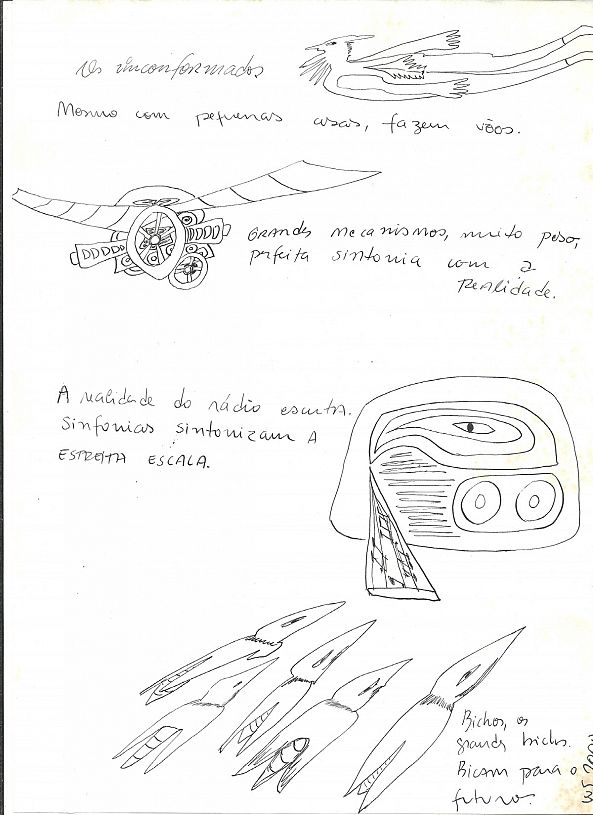 Os inconformados
Mesmo com pequenas asas, fazem vôos.
GRANDES mecanismos, muito peso,
perfeita sintonia com a
REALIDADE.
A realidade do rádio escuta.
Sinfonias sintonizam A
ESTREITA ESCALA.
Bichos, os
grandes bichos.
Bicam para o
futuro.